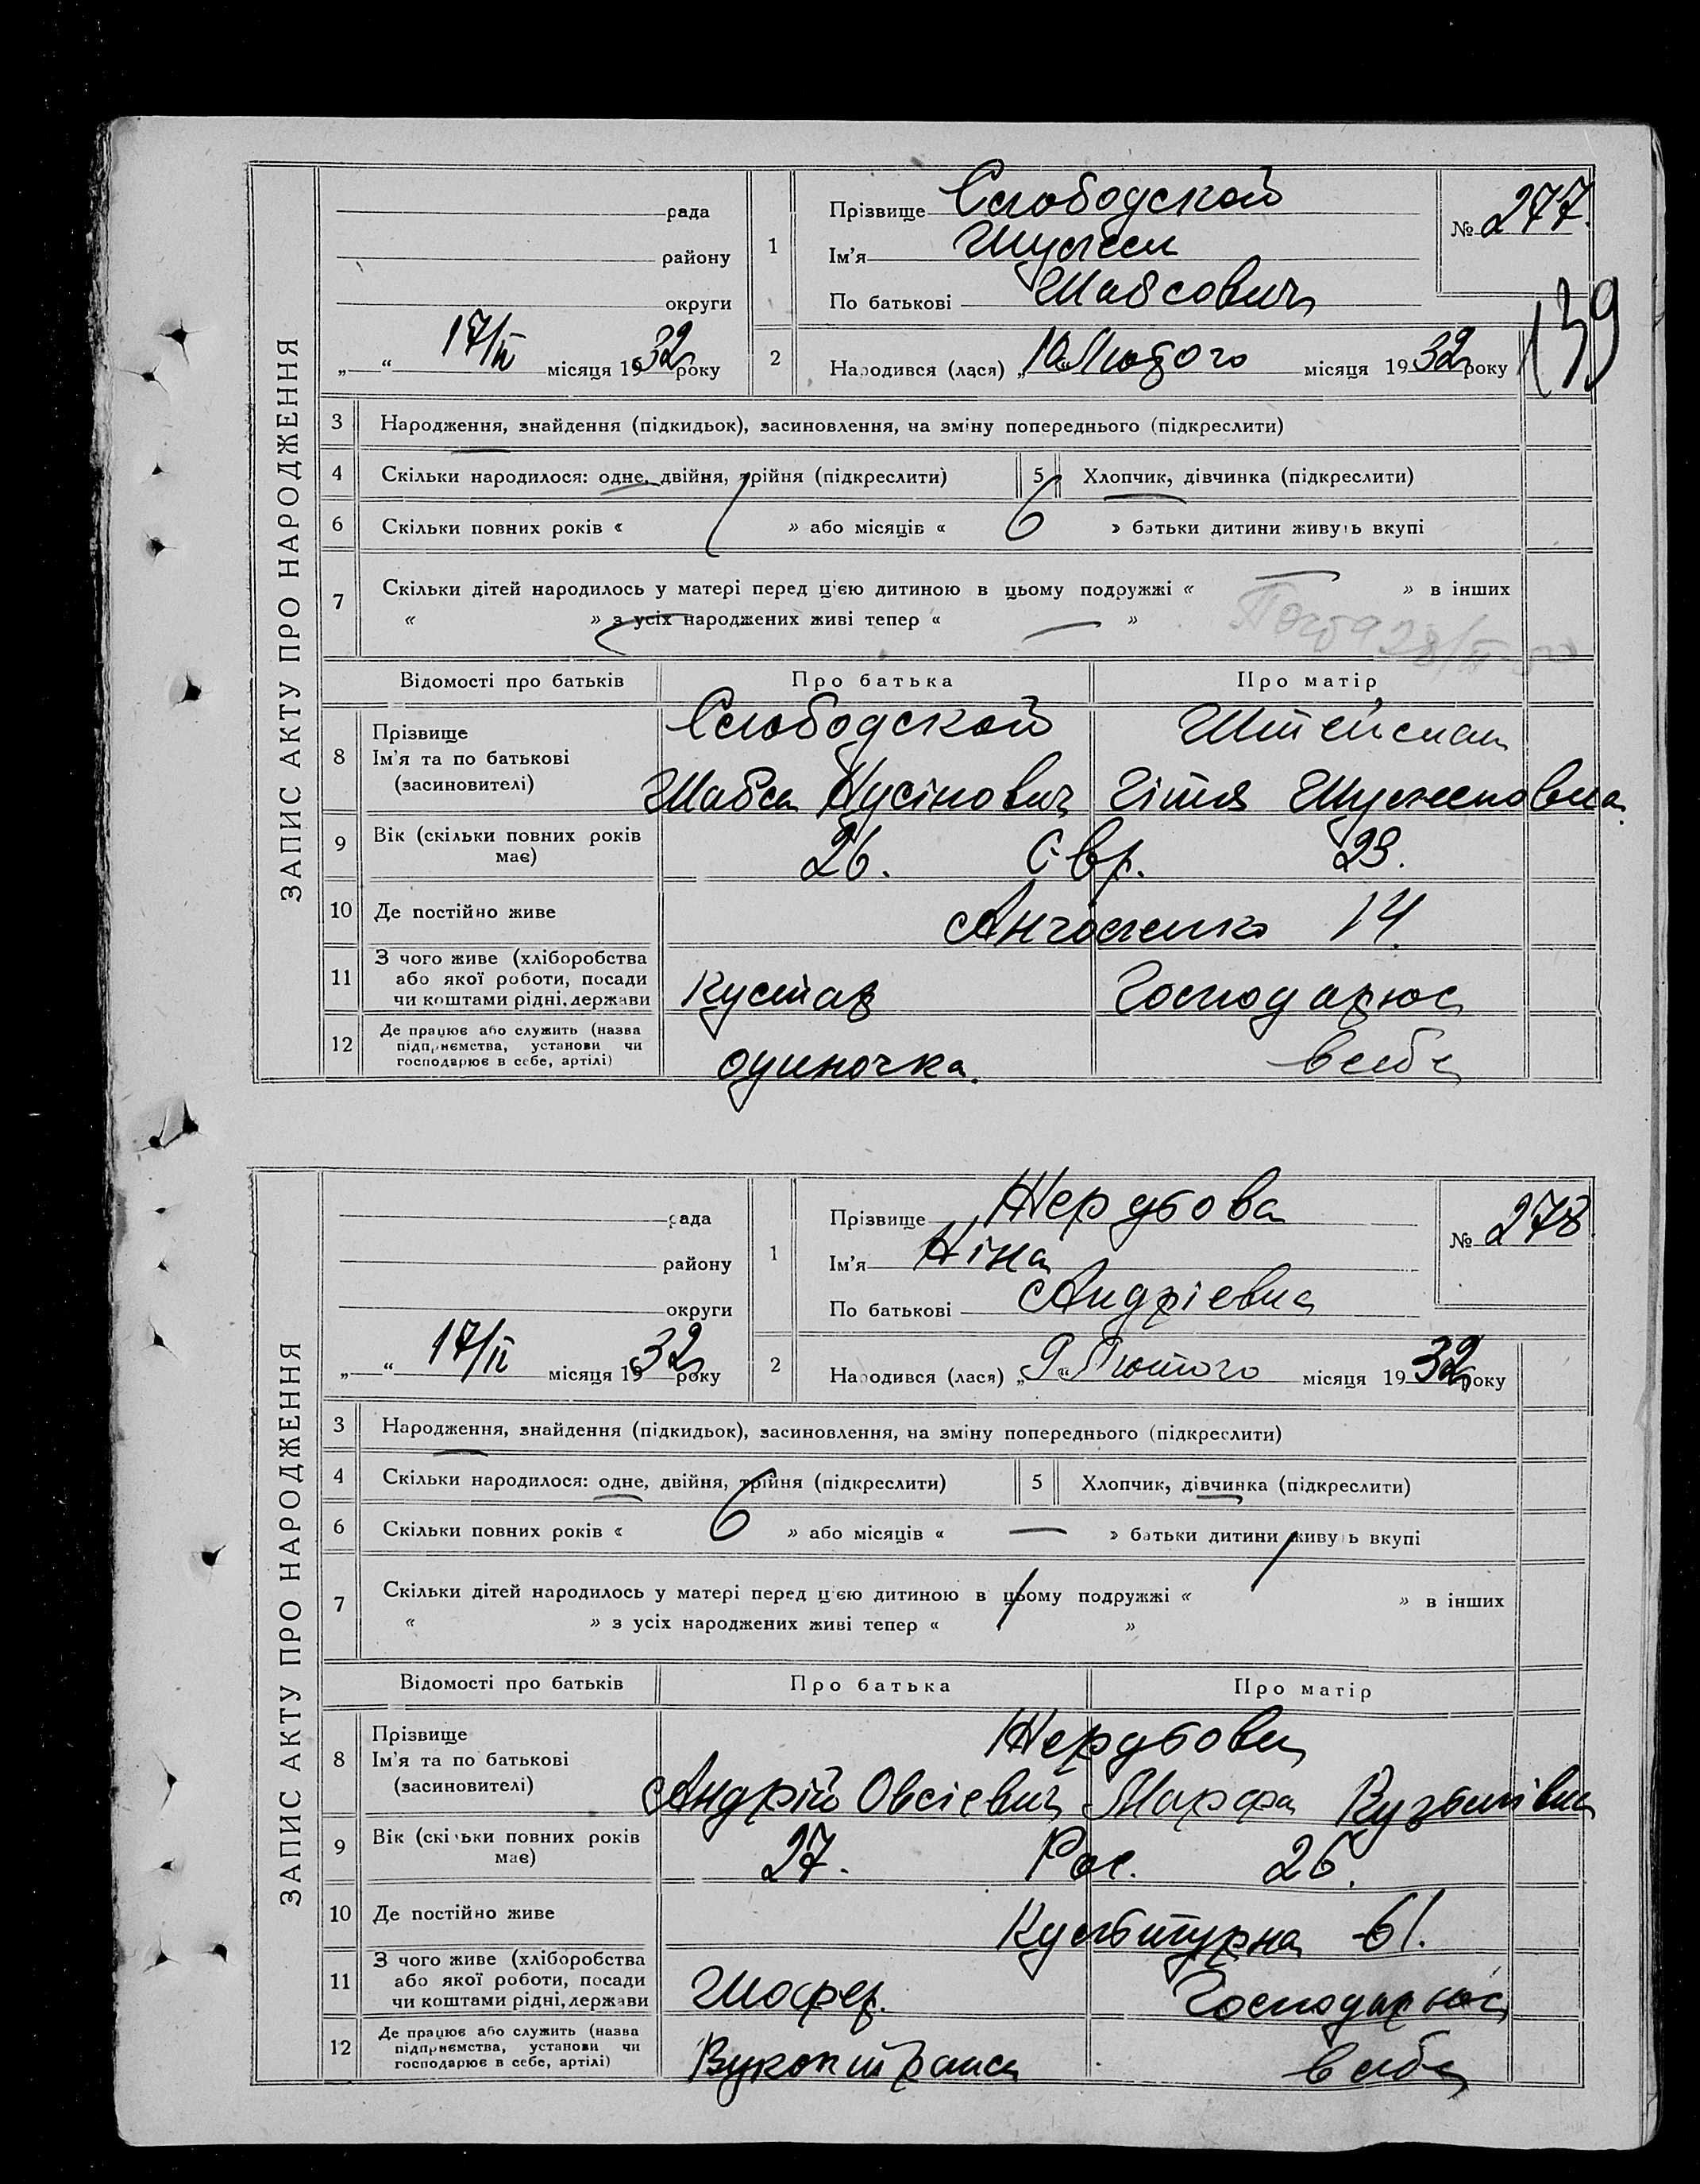 ЗАПИС АКТУ ПРО НАРОДЖЕННЯ
рада
району
округи
„ “ 17/II місяця 1932 року
1
Прізвище Слободской
Ім'я
По батькові Шабсович
№ 277.
139
2 Народився (лася) „10“ Лютого місяця 1932 року
3 Народження, знайдення (підкидьок), засиновлення, на зміну попереднього (підкреслити)
4 Скільки народилося: одне, двійня, трійня (підкреслити) 5 Хлопчик, дівчинка (підкреслити)
6 Скільки повних років « » або місяців « 6 » батьки дитини живуть вкупі
7 Скільки дітей народилось у матері перед цією дитиною в цьому подружжі « — » в інших
« — » з усіх народжених живі тепер « — »
Відомості про батьків Про батька Про матір
8 Прізвище
Ім'я та по батькові
(засновителі)
Слободской Штейсман
Шабса Нусінович Гітя
9 Вік (скільки повних років має) 26. Євр. 23.
10 Де постійно живе 14
11 З чого живе (хліборобства або якої роботи, посади чи коштами рідні, держави Кустар Господарює
12 Де працює або служить (назва підприємства, установи чи господарює в себе, артілі) одиночка. в себе
ЗАПИС АКТУ ПРО НАРОДЖЕННЯ
рада
району
округи
„ “ 17/II місяця 1932 року
1
Прізвище Жердьова
Ім'я Ніна
По батькові Андріевна
№ 278.
2 Народився (лася) „9“ Лютого місяця 1932 року
3 Народження, знайдення (підкидьок), засиновлення, на зміну попереднього (підкреслити)
4 Скільки народилося: одне, двійня, трійня (підкреслити) 5 Хлопчик, дівчинка (підкреслити)
6 Скільки повних років « 6 » або місяців « — » батьки дитини живуть вкупі
7 Скільки дітей народилось у матері перед цією дитиною в цьому подружжі « 1 » в інших
« » з усіх народжених живі тепер « 1 »
Відомості про батьків Про батька Про матір
8 Прізвище
Ім'я та по батькові
(засиновителі)
Жердьови
Андрій Овсієвич Марфа Кузьмівна
9 Вік (скільки повних років має) 27. Рос. 26.
10 Де постійно живе Культурна 61.
11 З чого живе (хліборобства або якої роботи, посади чи коштами рідні, держави Шофер. Господарює
12 Де працює або служить (назва підприємства, установи чи господарює в себе, артілі) Вукопштранса в себе